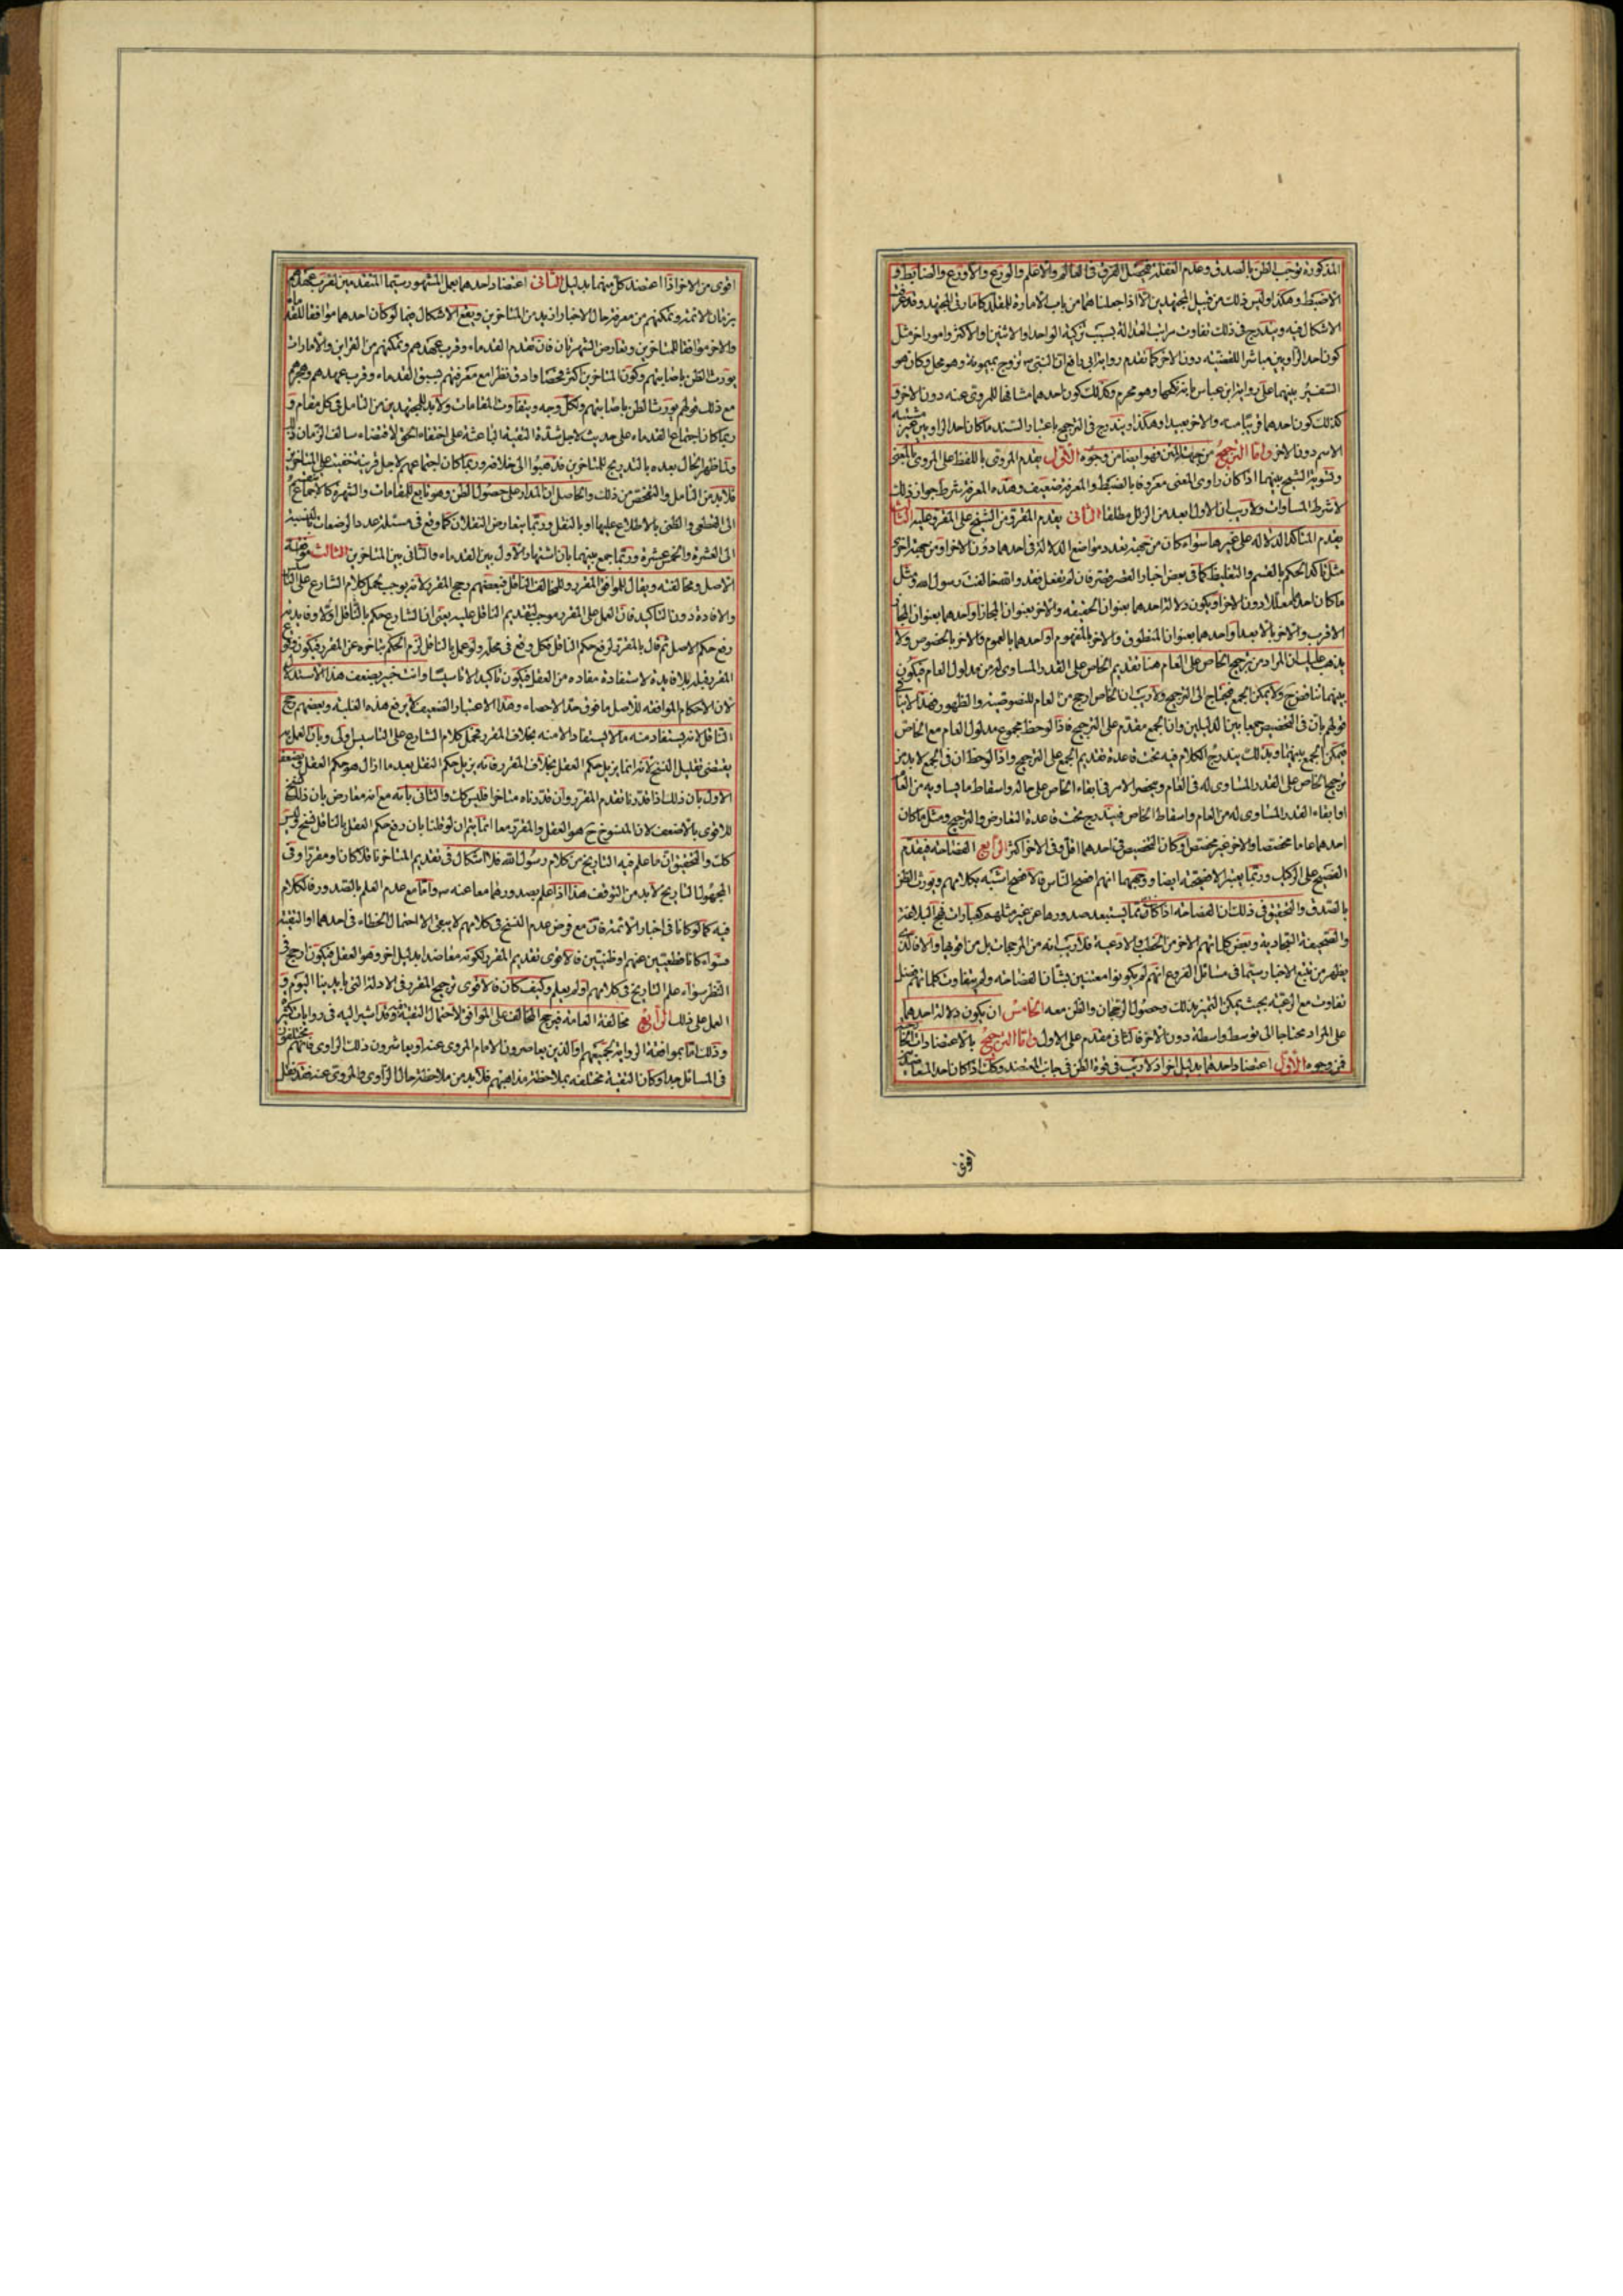 المذكورة توجب الظن بالصدق وعدم الغفلة فيحصل الفرق في العالم والاعلم والورع والاورع والضابط و
الاضبط وهكذا وليس ذلك من قبيل المجتهدين الا اذا جعلناهما من باب الامارة للمقلد كما مر في المجتهد وقد عرفت
الاشكال فيه ويندرج في ذلك تفاوت مراتب العدالة بسبب تزكية الواحد او الاثنين والاكثر وامور اخر مثل
كون احد الراويين مباشرا للقضية دون الاخر كما تقدم رواية ابي رافع ان النبي ص تزوج بميمونة وهو محل وكان هو
السفير بينهما على رواية ابن عباس بانه نكحها وهو محرم وكذلك كون احدهما مشافها للمروي عنه دون الاخر و
كذلك كون احدهما قريبا منه والاخر بعيدا وهكذا ويندرج في الترجيح باعتبار السند ما كان احد الراويين غير مشتبه
الاسم دون الاخر واما الترجيح من جهة المتن فهو ايضا من وجوه الاول يقدم المروي باللفظ على المروي بالمعنى
وتسوية الشيخ بينهما اذا كان راوي المعنى معروفا بالضبط والمعرفة ضعيف وهذه المعرفة شرط جواز ذلك
لا شرط المساوات ولا ريب ان الاول ابعد من الزلل مطلقا الثاني يقدم المقروّ من الشيخ على المقروّ عليه الثالث
يقدم المتاكد الدلالة على غيرها سواء كان من جهة تعدد مواضع الدلالة في احدهما دون الاخر او من جهة اخرى
مثل تاكد الحكم بالقسم والتغليظ كما في بعض اخبار القصر وقصر فان لم تفعل فقد والله خالفت رسول الله ومثل
ما كان احدهما معللا دون الاخر او يكون دلالة احدهما بعنوان الحقيقة والاخر بعنوان المجاز او احدهما بعنوان المجاز
الاقرب والاخر بالابعد او احدهما بعنوان المنطوق والاخر بالمفهوم او احدهما بالعموم والاخر بالخصوص ولا
يذهب عليك ان المراد من ترجيح الخاص على العام هنا تقديم الخاص على القدر المساوي له من مدلول العام فيكون
بينهما تناقض ولا يمكن الجمع فيحتاج الى الترجيح ولا ريب ان الخاص ارجح من العام للنصوصية والظهور وهذا لا ينافي
قولهم بان في التخصيص جمعا بين الدليلين وان الجمع مقدم على الترجيح فاذا لوحظ مجموع مدلول العام مع الخاص
فيمكن الجمع بينهما وبذلك يندرج الكلام فيه تحت قاعدة تقديم الجمع على الترجيح واذا لوحظ ان في الجمع لابد من
ترجيح الخاص على القدر المساوي له في العام وينحصر الامر في ابقاء الخاص على حاله واسقاط ما يساويه من العام
او ابقاء القدر المساوي له من العام واسقاط الخاص فيندرج تحت قاعدة التعارض والترجيح ومثل ما كان
احدهما عاما مخصصا والاخر غير مخصص او كان التخصيص في احدهما اقل وفي الاخر اكثر الرابع الفصاحة فيقدم
الفصيح على الركيك وربما يعتبر الافصحية ايضا ووجهها انهم افصح الناس فالافصح اشبه بكلامهم ويورث الظن
بالصدق والتحقيق في ذلك ان الفصاحة اذا كان مما يستبعد صدورها عن غير مثلهم كعبارات نهج البلاغة
والصحيفة السجادية وبعض كلماتهم الاخر من الخطب والادعية فلا ريب انه من المرجحات بل من اقويها والا فالذي
يظهر من تتبع الاخبار سيما في مسائل الفروع انهم لم يكونوا معتنين بشان الفصاحة ولم يتفاوت كلماتهم فضل
تفاوت مع الرعية بحيث يمكن التميز بذلك وحصول الرجحان والظن معه الخامس ان يكون دلالة احدهما
على المراد محتاجا الى توسط واسطة دون الاخر فالثاني مقدم على الاول واما الترجيح بالاعتضادات الخارجية
فمن وجوه الاول اعتضاد احدهما بدليل اخر اذ لا ريب في قوة الظن في جانب المعتضد وكذلك اذا كان احد المعاضدين
اقوى
اقوى من الاخر اذا اعتضد كل منهما بدليل الثاني اعتضاد احدهما بعمل المشهور سيما المتقدمين لقرب عهدهم
بزمان الائمة وتمكنهم من معرفة حال الاخبار ازيد من المتاخرين ويقع الاشكال فيما لو كان احدهما موافقا للقدماء
والاخر موافقا للمتاخرين وتعارض الشهرتان فان تقدم القدماء وقرب عهدهم وتمكنهم من القراين والامارات
يورث الظن باصابتهم وكون المتاخرين اكثر تفحصا وادق نظرا مع معرفتهم بسبق القدماء وقرب عهدهم وهجرهم
مع ذلك قولهم يورث الظن باصابتهم ولكل وجه ويتفاوت المقامات ولابد للمجتهدين من التامل في كل مقام و
ربما كان اجتماع القدماء على حديث لاجل شدة التقية الباعثة على اختفاء الحق لاقتضاء سالف الزمان ذلك
ولما ظهر الحال بعده بالتدريج للمتاخرين فذهبوا الى خلافه وربما كان اجتماعهم لاجل قرينة خفيت على المتاخرين
فلابد من التامل والتفحص من ذلك والحاصل ان المدار على حصول الظن وهو تابع للمقامات والشهرة كالاجماع ينقسم
الى القطعي والظني بالاطلاع عليها او بالنقل وربما يتعارض النقلان كما وقع في مسئلة عدد الرضعات بالنسبة
الى العشرة والخمس عشرة وربما جمع بينهما بان اشتهار الاول بين القدماء والثاني بين المتاخرين الثالث موافقة
الاصل ومخالفته ويقال للموافق المقرر وللمخالف الناقل فبعضهم رجح المقرر لانه يوجب حمل كلام الشارع على التاسيس
والافادة دون التاكيد فان العمل على المقرر موجب لتقديم الناقل عليه بمعنى ان الشارع حكم بالناقل اولا وفايدته
رفع حكم الاصل ثم قال بالمقرر لرفع حكم الناقل فكل وقع في محله ولو عمل بالناقل لزم الحكم بتاخره عن المقرر فيكون وقوع
المقرر قبله بلا فايدة لاستفادة مفاده من العقل فيكون تاكيدا لا تاسيسا وانت خبير بضعف هذا الاستدلال
لان الاحكام الموافقة للاصل ما فوق حد الاحصاء وهذا الاعتبار الضعيف لا يرفع هذه الغلبة وبعضهم رجح
الناقل لانه يستفاد منه ما لا يستفاد الا منه بخلاف المقرر فحمل كلام الشارع على التاسيس اولى وبان العمل به
يقتضي تقليل النسخ لانه انما يزيل حكم العقل بخلاف المقرر فانه يزيل حكم النقل بعد ما ازال هو حكم العقل ويضعف
الاول بان ذلك اذا قدرنا تقدم المقرر وان قدرناه متاخرا فليس كك والثاني بانه مع انه معارض بان ذلك نسخ
للاقوى بالاضعف لان المنسوخ ح هو العقل والمقرر معا انما يتم ان لو قلنا بان رفع حكم العقل بالناقل نسخ وليس
كك والتحقيق ان ما علم فيه التاريخ من كلام رسول الله فلا اشكال في تقديم المتاخر ناقلا كان او مقررا وفي
المجهول التاريخ لابد من التوقف هذا اذا علم بصدورهما معا عنه ص واما مع عدم العلم بالصدور فالكلام
فيه كما لو كانا في اخبار الائمة فان مع فرض عدم النسخ في كلامهم لا يبقى الا احتمال الخطاء في احدهما او التقية
سواء كانا قطعيتين عنهم او ظنيتين فالاقوى تقديم المقرر لكونه معاضدا بدليل اخر وهو العقل فيكون ارجح في
النظر سواء علم التاريخ في كلامهم او لم يعلم وكيف كان فالاقوى ترجيح المقرر في الادلة التي بايدينا اليوم و
العمل على ذلك الرابع مخالفة العامة فيرجح المخالف على الموافق لاحتمال التقية فيه وقد اشير اليه في روايات كثيرة
وذلك اما بموافقة الرواية لجميعهم او الذين يعاصرون الامام المروي عنه او يعاشرون ذلك الراوي فانهم مختلفون
في المسائل جدا وكان التقية مختلفة بملاحظة مذاهبهم فلابد من ملاحظة حال الراوي والمروي عنه